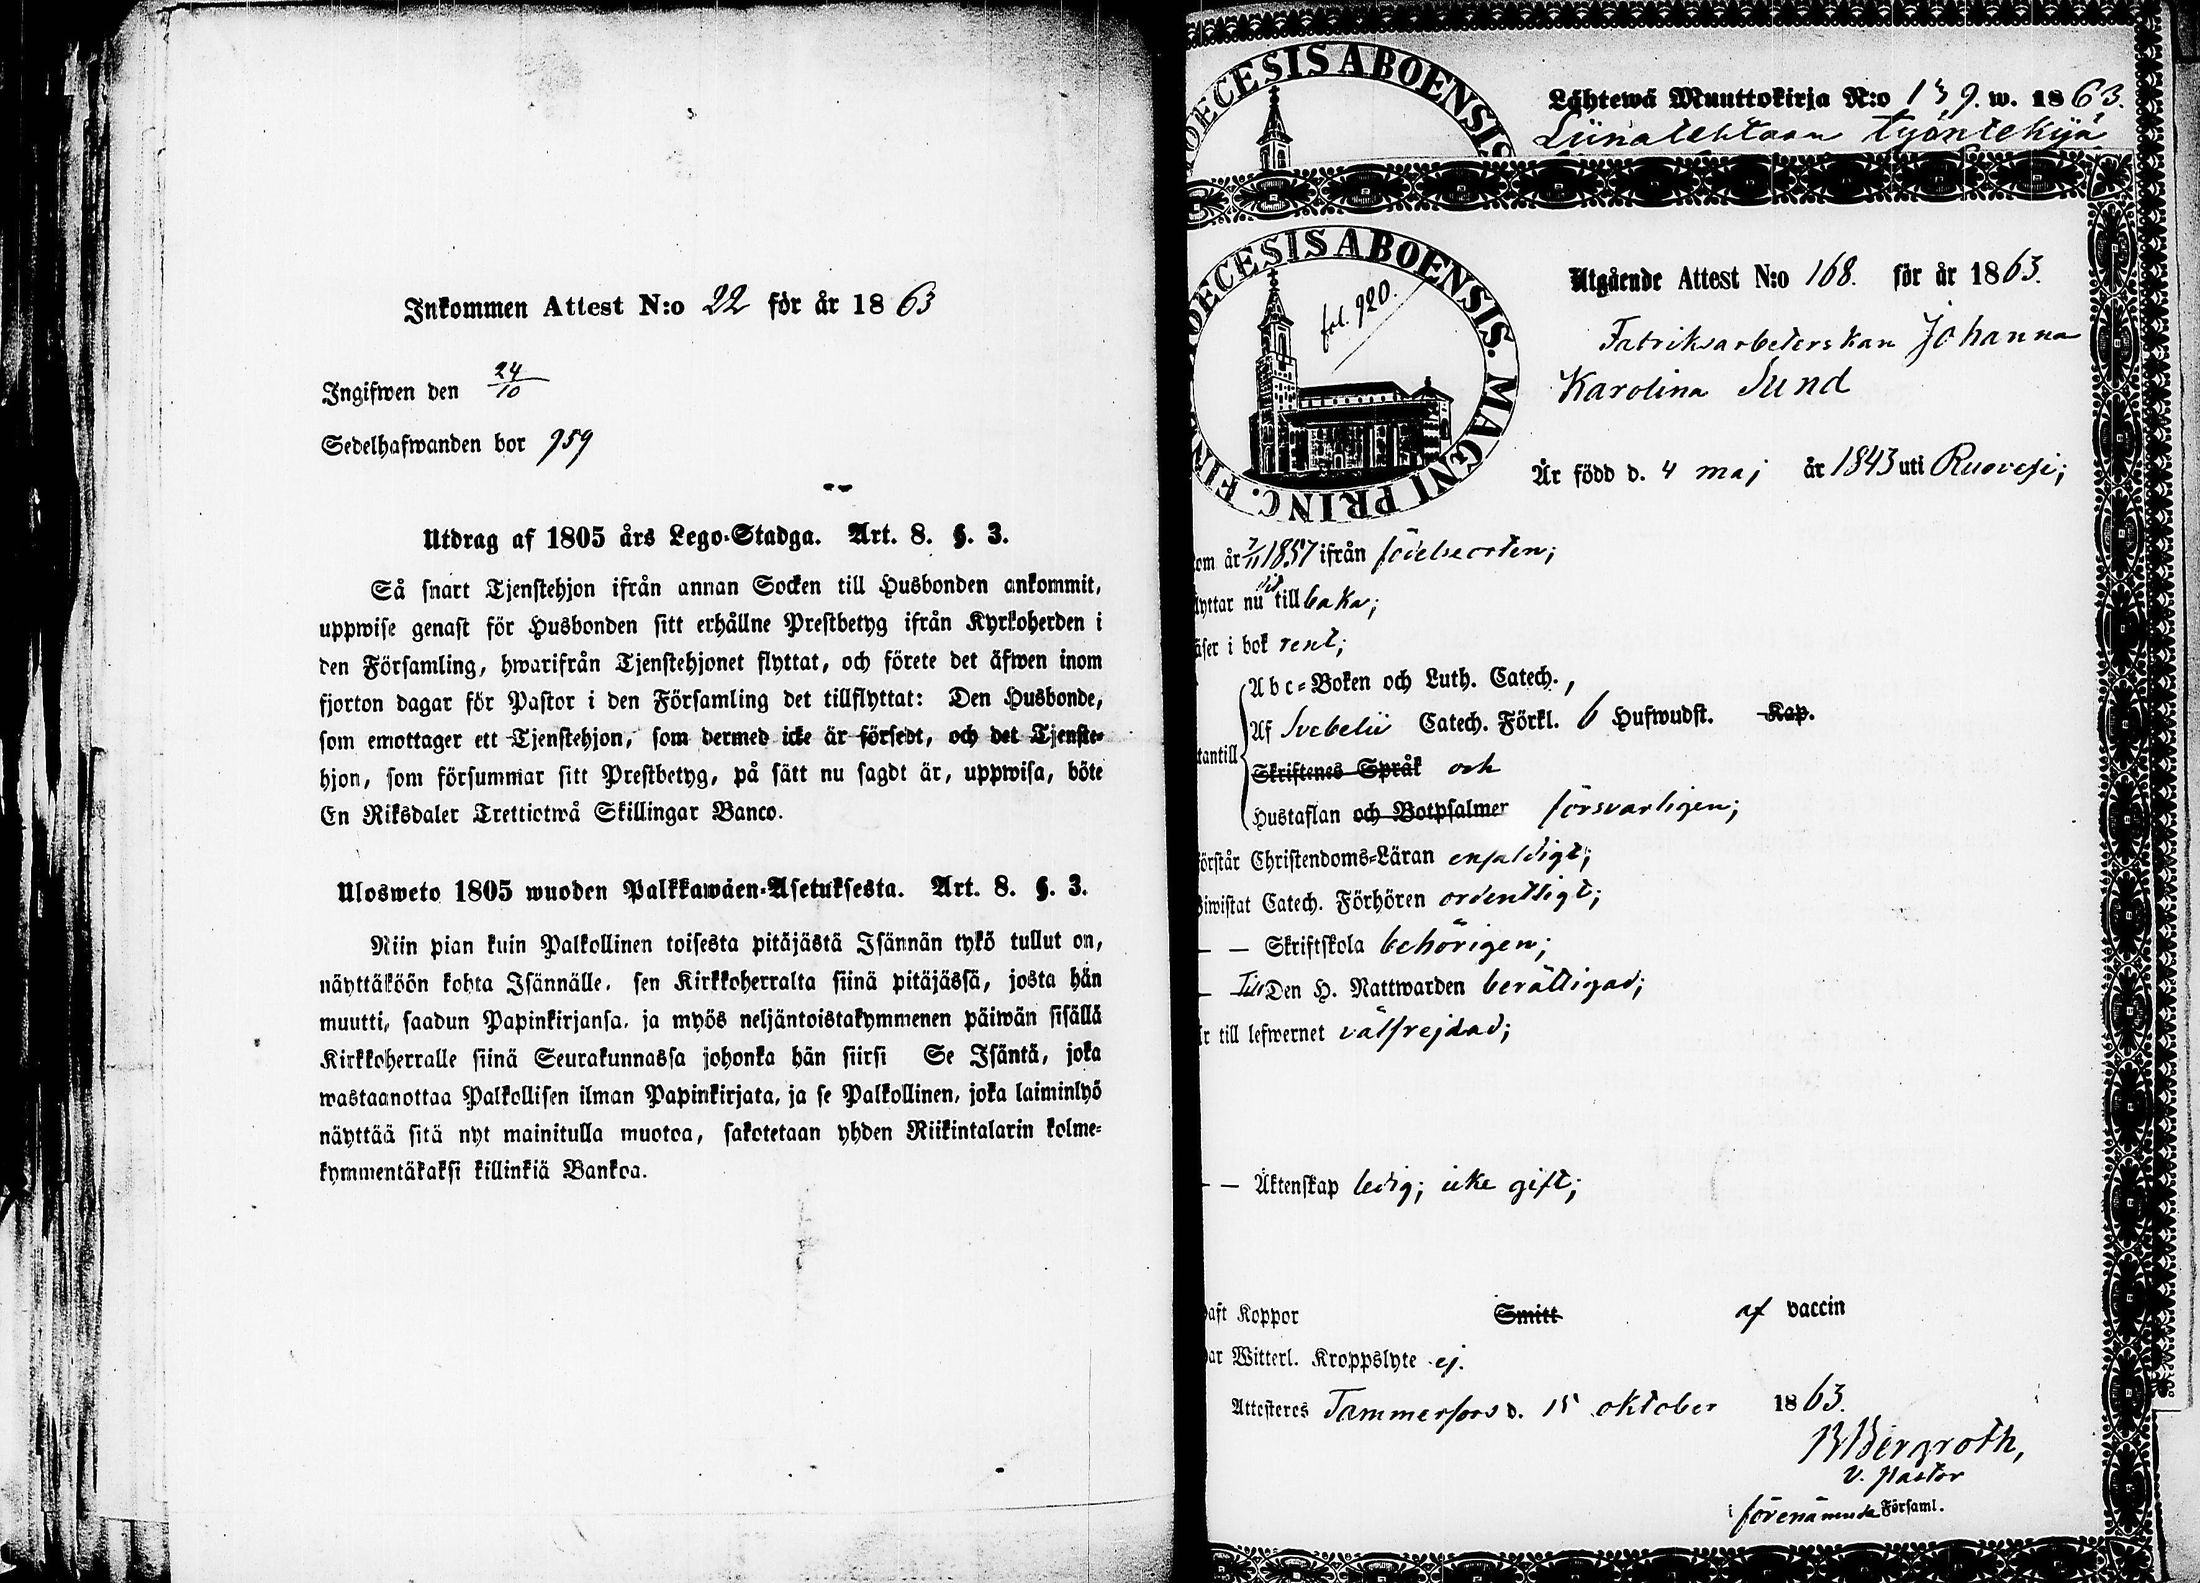 Inkommen Attest N:o 22 för år 1863
Ingifwen den 24/10
Sedelhafwanden bor 959
Utdrag af 1805 års Lego-Stadga. Art. 8. §. 3.
Så snart Tjenstehjon ifrån annan Socken till Husbonden ankommit,
uppwise genast för Husbonden sitt erhållne Prestbetyg ifrån Kyrkoherden i
den Församling, hwarifrån Tjenstehjonet flyttat, och förete det äfwen inom
fjorton dagar för Pastor i den Församling det tillflyttat: Den Husbonde,
som emottager ett Tjenstehjon, som dermed icke är försedt, och det Tjenste-
hjon, som försummar sitt Prestbetyg, på sätt nu sagdt är, uppwisa, böte
En Riksdaler Trettiotwå Skillingar Banco.
Ulosweto 1805 wuoden Palkkawäen-Asetuksesta. Art. 8. §. 3.
Niin pian kuin Palkollinen toisesta pitäjästä Isännän tykö tullut on,
näyttäköön kohta Isännälle, sen Kirkkoherralta siinä pitäjässä, josta hän
muutti, saadun Papinkirjansa, ja myös neljäntoistakymmenen päiwän sisällä
Kirkkoherralle siinä Seurakunnassa johonka hän siirsi Se Isäntä, joka
wastaanottaa Palkollisen ilman Papinkirjata, ja se Palkollinen, joka laiminlyö
näyttää sitä nyt mainitulla muotoa, sakotetaan yhden Riikintalarin kolme-
kymmentäkaksi killinkiä Bankoa.
OECESIS ABOENSIS
Lähtewä Muuttokirja N:o 139. w. 1863.
Liinatehtaan työntekijä
OECESIS ABOENSIS. MAGNI PRINC. FIN
fol. 920.
Utgående Attest N:o 168. för år 1863.
Fabriksarbeterskan Johanna
Karolina Sund
Är född d. 4 maj år 1843 uti Ruovesi;
om år 7/11 1857 ifrån födelseorten;
lyttar nu dit tillbaka;
äser i bok rent;
Abc-Boken och Luth. Catech.,
Af Svebelii Catech. Förkl. 6 Hufwudst. Kap.
tantill
Skriftenes Språk och
Hustaflan och Botpsalmer försvarligen;
örstår Christendoms-Läran enfaldigt;
iwistat Catech. Förhören ordentligt;
— — Skriftskola behörigen;
— Till Den H. Nattwarden berättigad;
r till lefwernet välfrejdad;
— — Äktenskap ledig; icke gift;
aft Koppor Smitt af vaccin
ar Witterl. Kroppslyte ej.
Attesteras Tammerfors d. 15 oktober 1863.
Bergroth,
v. pastor
i förenämnda Församl.